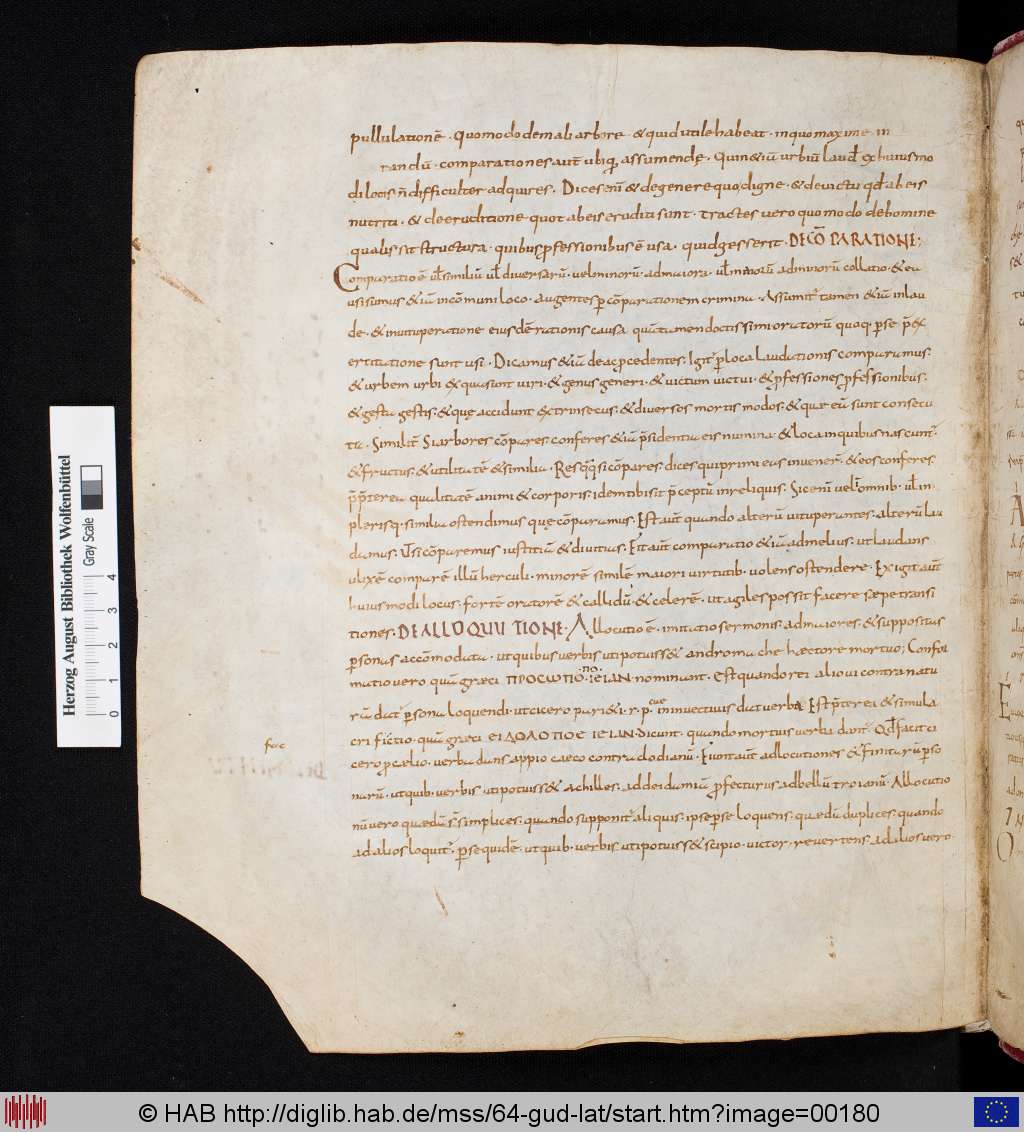 pullulationē . Quomodo de mali arbore . & quid utile habeat . in quo maxime in
randū . comparationes aut̄ ubiq; assumendę . Quin & iū urbiū laud̄ ex huiusmo
di locis n̄ difficulter adquires . Dices enī & de genere quo digne . & de uictu qd̄ ab eis
nutriti . & de eruditione quot ab eis eruditi sunt . tractes uero quomodo de homine
qualis sit structura . quibus ꝓfessionibus ē usa . quid gesserit . DE CŌPARATIONE;
Comparatio ē ul̄ similiū ul̄ diuersarū . uel minorū . ad maiora . ul̄ maiorū ad minorū collatio . & eu
usi sumus & iū in cōmuni loco . augentes p̱ cōparationem crimina . Assumit᷑ tamen & iū in lau
de . & in uituperatione eiusdē rationis causa quā tamen doctissimi oratorū quoq; p̱ se p̄ ex
ertitatione sunt usi . Dicamus & iū de ac p̱cedentes . Igit᷑ p̱ loca laudationis comparamus .
& urbem urbi ex qua sunt uiri . & genus generi . & uictum uictui . & ꝓfessiones ꝓfessionibus .
& gesta gestis . & quę accidunt extrinsecus . & diuersos mortis modos . & que eū sunt consecu
ta . Similit᷑ Si arbores cōpares . conferes & iū p̄sidentia eis numina . & loca in quibus nascunt᷑ .
& fructus . & utilitatē & similia . Res qq; si cōpares . dices qui primi eas inuener̄ . & eos conferes
p̄p̄terea qualitatē animi & corporis . idem tibi sit p̄ceptū in reliquis . Sic enī uel omnib; ul̄ in
plerisq; similia ostendimus quę cōparamus . Est aut̄ quando alterū uituperantes . alterū lau
damus . Ut si cōparemus iustitiū & diuitias . Fit aut̄ comparatio & iū ad melius . ut laudans
ulixē comparē illū herculi . minorē similē maiori uirtutib; uolens ostendere . Exigit aut̄
huiusmodi locus . fortē oratorē & callidū . & celerē . ut agiles possit facere sæpe transi
tiones . DE ALLOQUUTIONE . Allocutio ē . imitatio sermonis . ad maiores . & suppositas
p̱sonas accōmodata . ut quibus uerbis uti potuiss& andromache hæctore mortuo; Confor
matio uero quā græci ΠΡΟCωΠΟ ΠΟ IEIAN . nominant . est quando rei alioui contra natu
rā dat᷑ p̱sona loquendi . ut cicero patri&i . r . p . cuę in inuectiuis dat uerba Est p̄terea & simula
cri fictio . quā græci EIΔOΛOΠOE IEIAN . Dicunt . quando mortuis uerba dant᷑ . Qd̄ facit ci
cero p̱ cælio . uerba dans appio cæco contra clodianū . Fiunt aut̄ adlocutiones & Finitarū p̱so
narū . ut quib; uerbis uti potuiss& achilles . ad deidamiū ꝓfecturus ad bellū troianū . Allocutio
nū uero quædā s̄ simplices . quando supponit᷑ aliquis . ipse p̱ se loquens . quædā duplices . quando
ad alios loquit᷑ . p̱ se quidē . ut quib; uerbis uti potuiss& scipio . uictor . reuertens . ad alios uero .
Herzog August Bibliothek Wolfenbüttel
Gray Scale
0 1 2 3 4
© HAB http://diglib.hab.de/mss/64-gud-lat/start.htm?image=00180